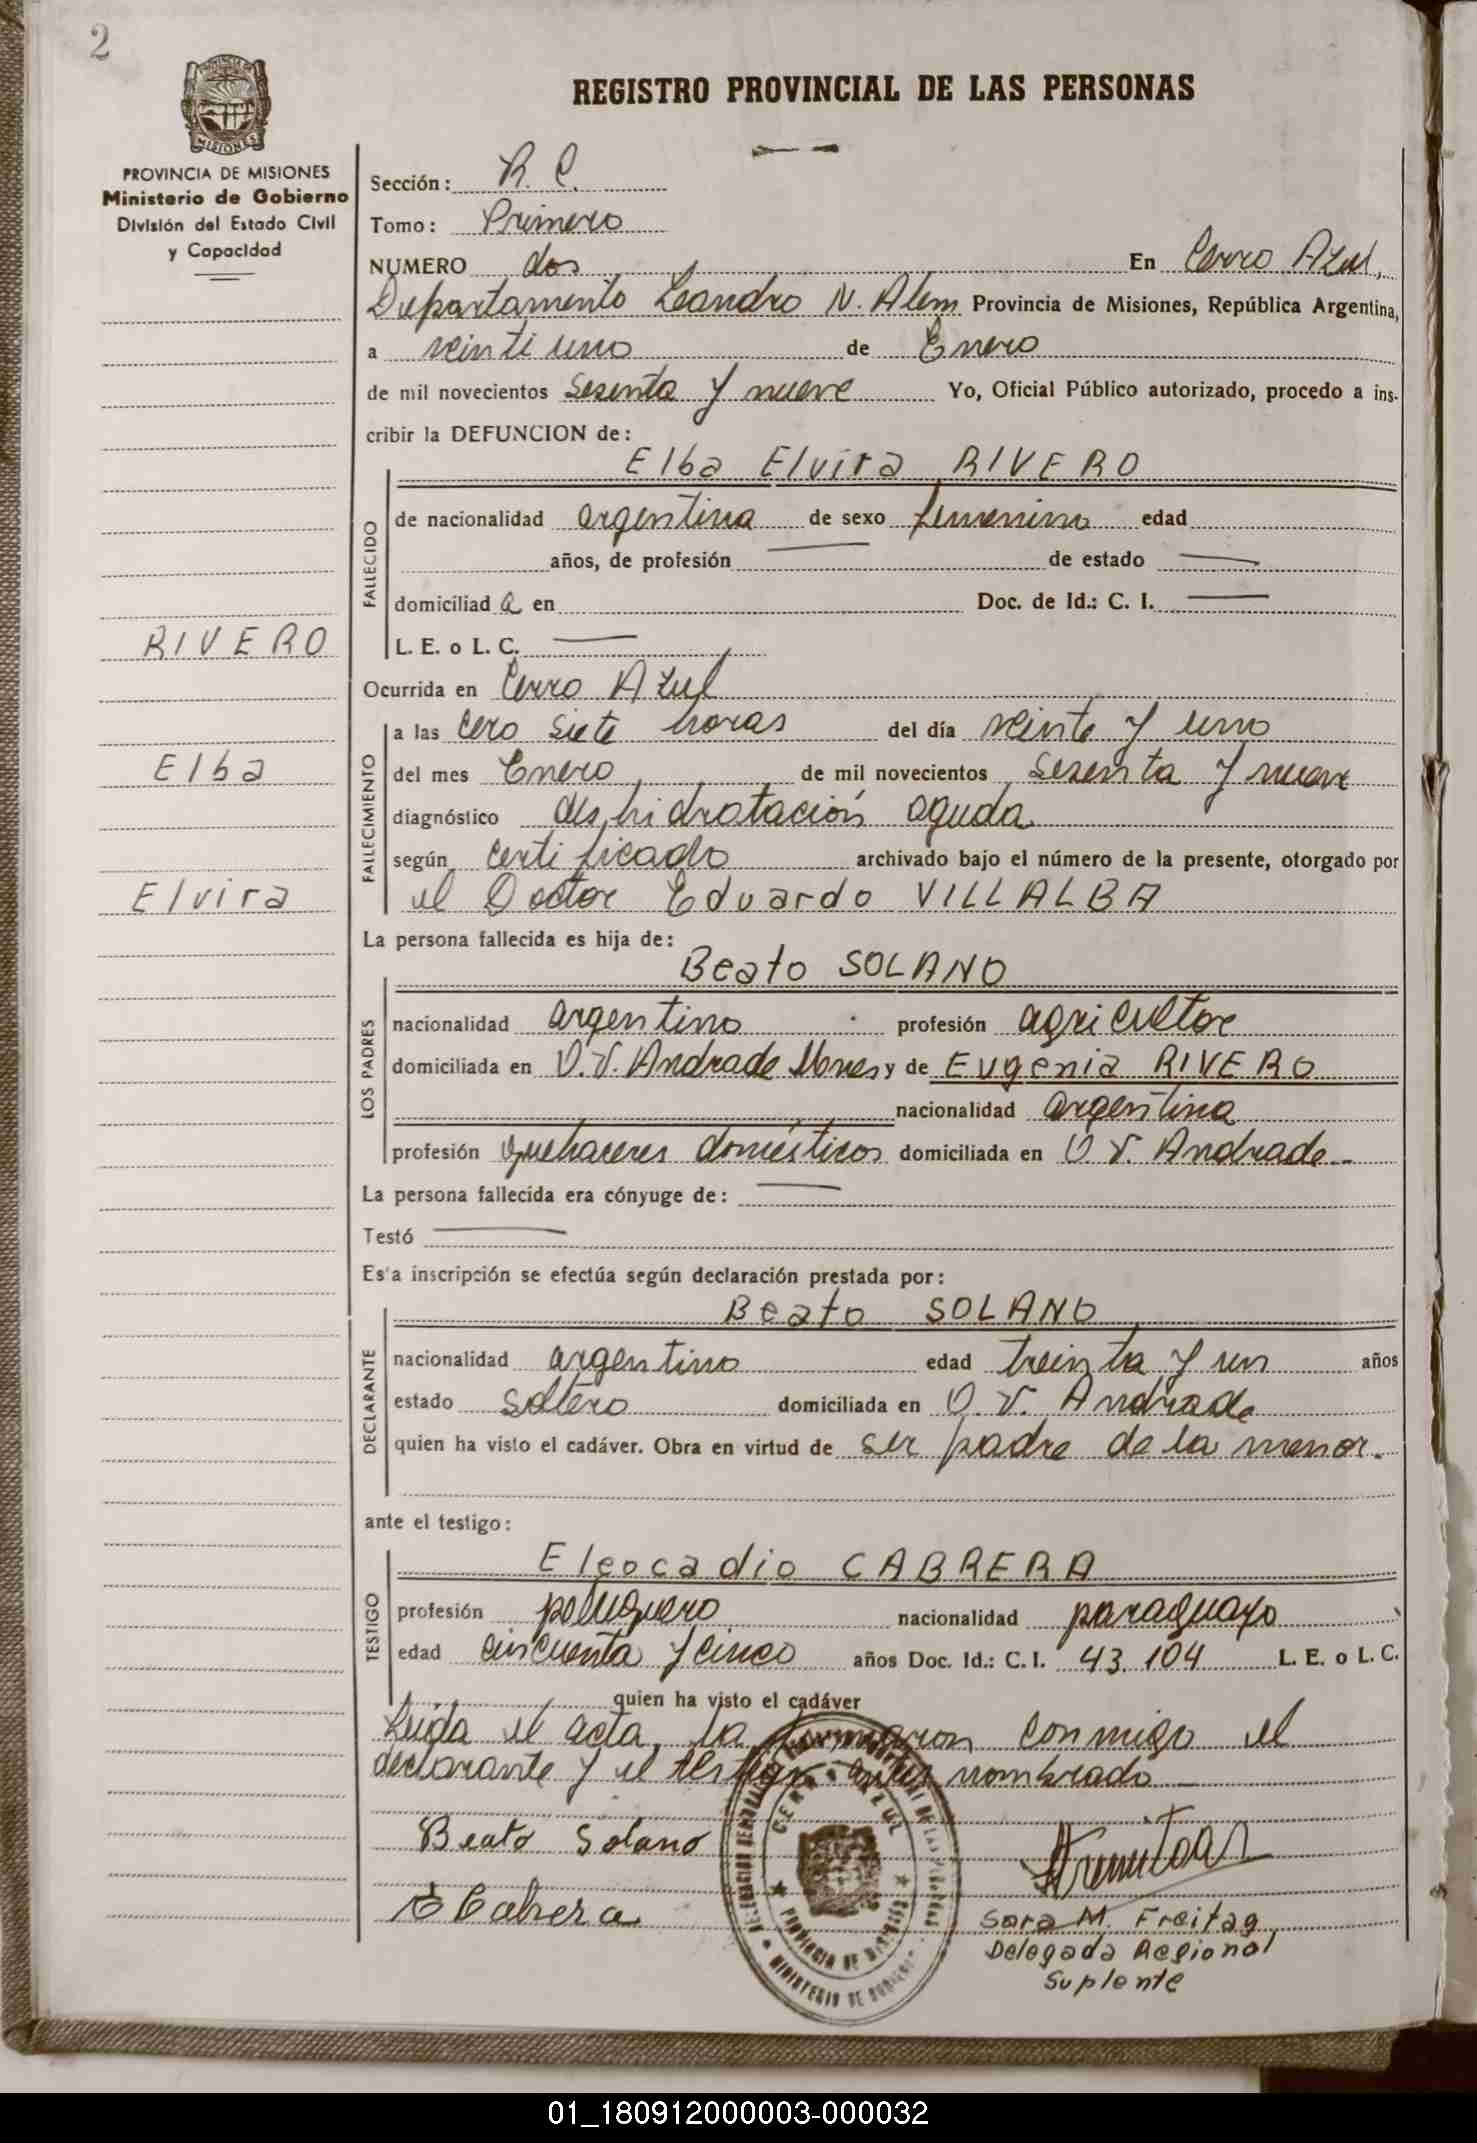 2
MISIONES
PROVINCIA DE MISIONES
Ministerio de Gobierno
División del Estado Civil
y Capacidad
RIVERO
Elba
Elvira
REGISTRO PROVINCIAL DE LAS PERSONAS
Sección: R. C.
Tomo: Primero
NUMERO dos En Cerro Azul,
Departamento Leandro N. Alem Provincia de Misiones, República Argentina,
a veinti uno de Enero
de mil novecientos Sesenta y nueve Yo, Oficial Público autorizado, procedo a ins-
cribir la DEFUNCION de:
Elba Elvira RIVERO
FALLECIDO
de nacionalidad argentina de sexo femenino edad
años, de profesión de estado
domiciliad a en Doc. de Id.: C. I.
L. E. o L. C.
Ocurrida en Cerro Azul
FALLECIMIENTO
a las Cero siete horas del día veinte y uno
del mes Enero de mil novecientos Sesenta y nueve
diagnóstico deshidratación aguda
según certificado archivado bajo el número de la presente, otorgado por
el Doctor Eduardo VILLALBA
La persona fallecida es hija de:
Beato SOLANO
LOS PADRES
nacionalidad argentino profesión agricultor
domiciliada en O. V. Andrade Mnes y de Eugenia RIVERO
nacionalidad argentina
profesión quehaceres domésticos domiciliada en O. V. Andrade
La persona fallecida era cónyuge de:
Testó
Es'a inscripción se efectúa según declaración prestada por:
Beato SOLANO
DECLARANTE
nacionalidad argentino edad treinta y un años
estado soltero domiciliada en O. V. Andrade
quien ha visto el cadáver. Obra en virtud de ser padre de la menor.
ante el testigo:
Eleocadio CABRERA
TESTIGO
profesión peluquero nacionalidad paraguayo
edad cincuenta y cinco años Doc. Id.: C. I. 43.104 L. E. o L. C.
quien ha visto el cadáver
Leída el acta, la firmaron conmigo el
declarante y el testigo antes nombrado
CERRO AZUL
PROVINCIA DE MISIONES
MINISTERIO DE GOBIERNO
Beato Solano
E Cabrera
Sara M. Freitag
Delegada Regional
Suplente
01_180912000003-000032